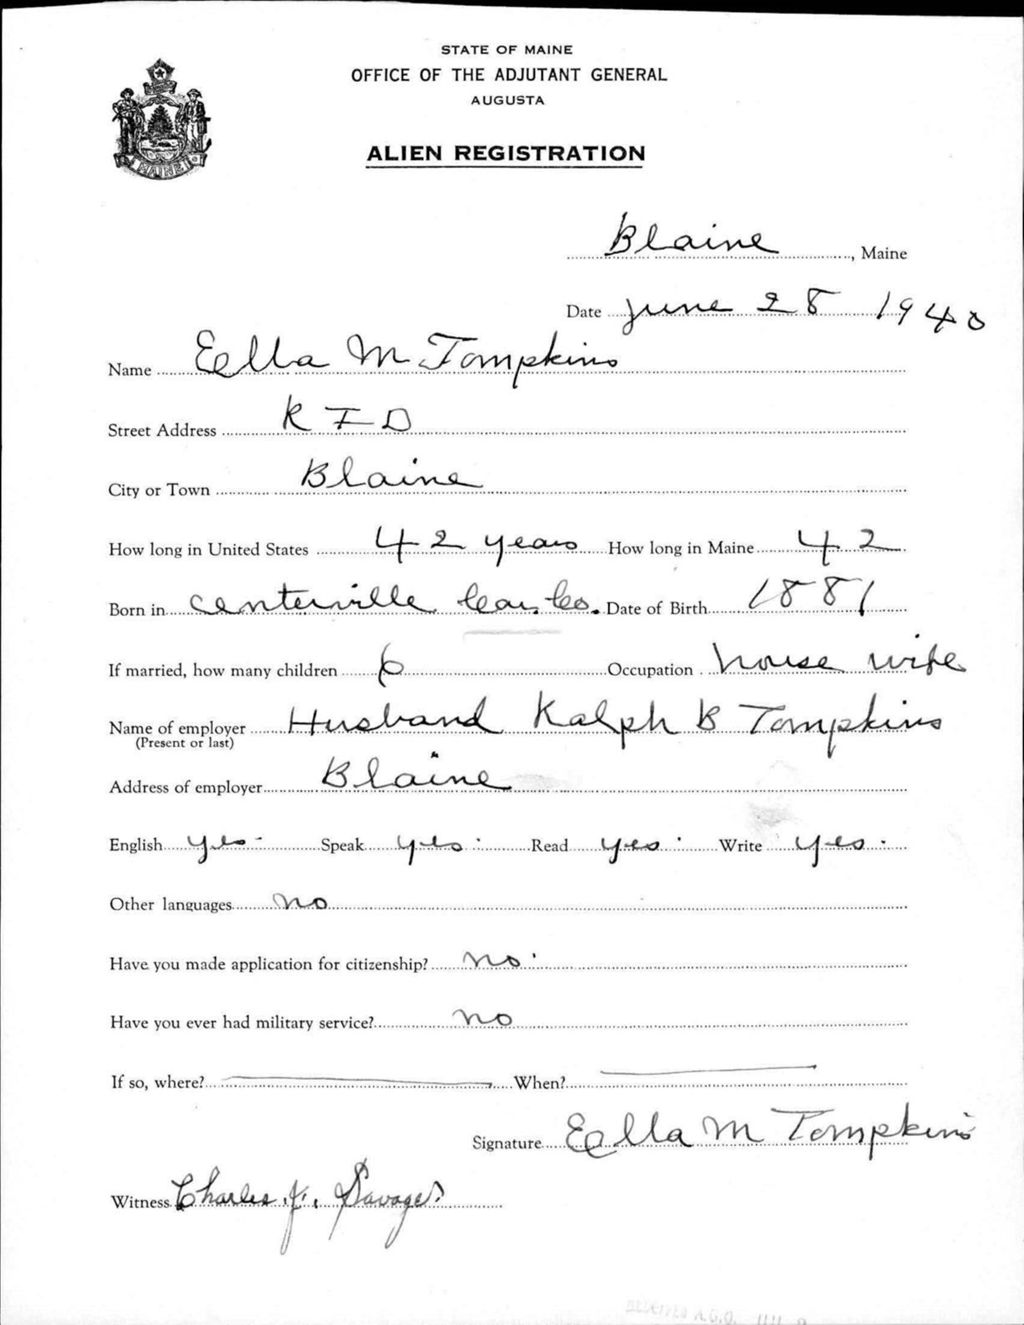 STATE OF MAINE
OFFICE OF THE ADJUTANT GENERAL
AUGUSTA
ALIEN REGISTRATION
MAINE
Blaine, Maine
Date June 28 1940
Name Ella M Tompkins
Street Address R F D
City or Town Blaine
How long in United States 42 years How long in Maine 42
Born in Centerville Car. Co. Date of Birth 1881
If married, how many children 6 Occupation house wife
Name of employer Husband Ralph B Tompkins
(Present or last)
Address of employer Blaine
English yes Speak yes Read yes Write yes
Other languages no
Have you made application for citizenship? no
Have you ever had military service? no
If so, where? When?
Signature Ella M Tompkins
Witness Charles J. Savage
A.G.O.